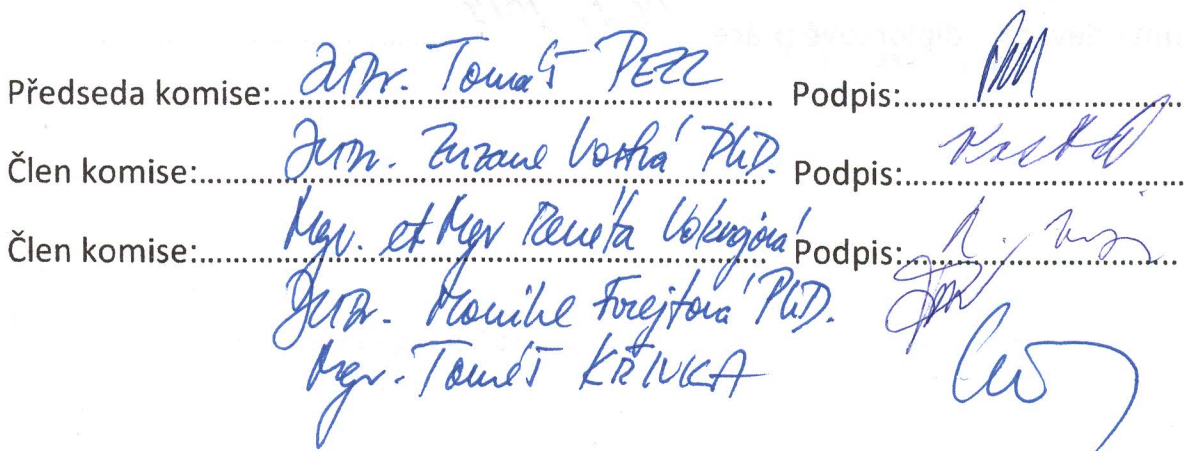 Předseda komise: JUDr. Tomáš PEZL Podpis:
Člen komise: JUDr. Zuzana Vostrá PhD. Podpis:
Člen komise: Mgr. et Mgr Renáta Vokrojová Podpis:
JUDr. Monika Forejtová PhD.
Mgr. Tomáš KŘIVKA